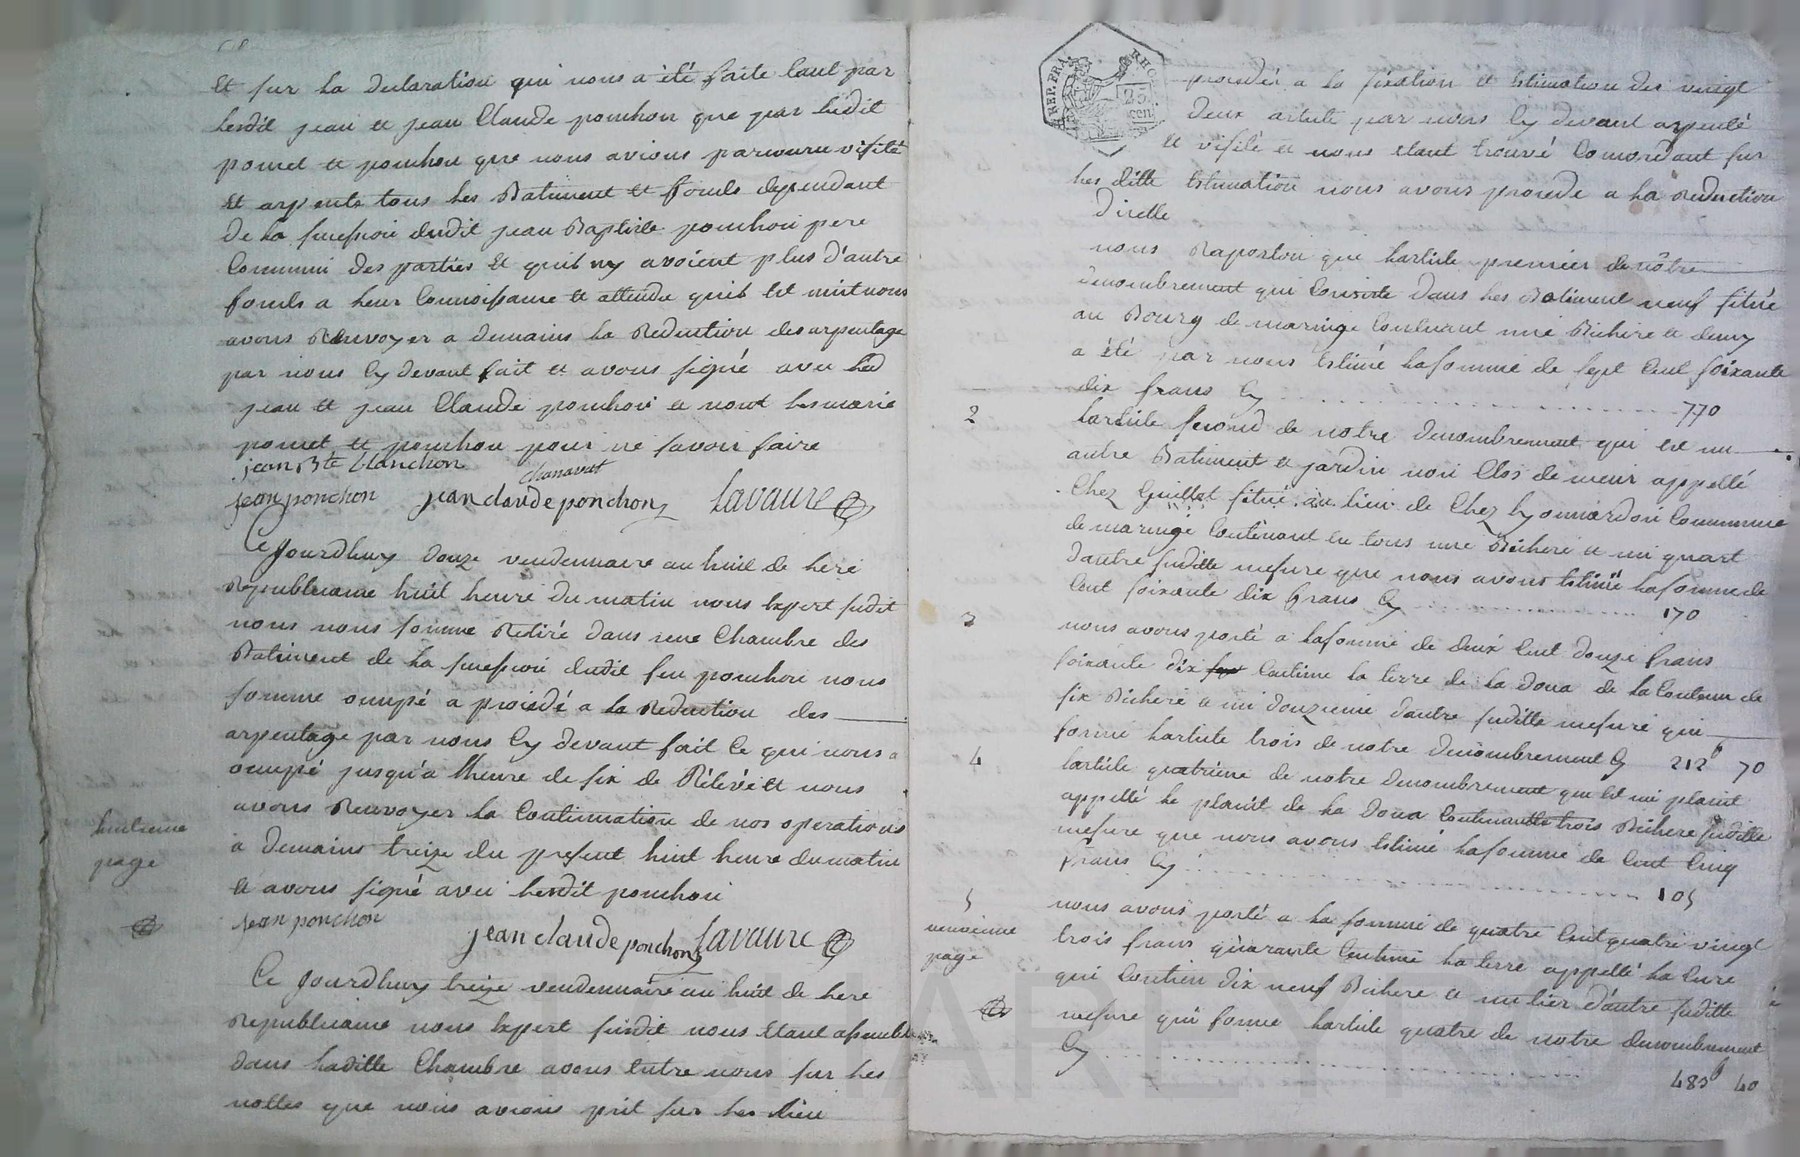 Et sur la declaration qui nous a été faite tant par
lesdit jean et jean Claude ponchon que par lesdit
poncet et ponchon que nous avions parcouru visité
Et arpenté tous les Batiment et fonds dependant
de la succession dudit jean Baptiste ponchon pere
Commun des parties Et quil ny avoient plus d'autre
fonds a leur Connoissance et attendu quil Est nuit nous
avons Renvoyer a demains la Reduction des arpentage
par nous Cy devant fait et avons signé avec lesd
jean et jean Claude ponchon et nont les marie
poncet et ponchon pour ne savoir faire
jean Bte blanchon
Chanavat
jean ponchon jean claude ponchon Lavaure
Ce Jourdhuy douze vendemiaire an huit de lere
Republicaine huit heure du matin nous Expert sudit
nous nous somme Retiré dans une Chambre des
Batiment de la succession dudit feu ponchon nous
somme ocupé a procédé a la Reduction des
arpentage par nous Cy devant fait Ce qui nous a
ocupé jusqu'a lheure de six de Rélévé et nous
avons Renvoyer la Continuation de nos operations
a demains treize du present huit heure du matin
et avons signé avec lesdit ponchon
huitieme
page
jean ponchon
jean claude ponchon Lavaure
Ce Jourdhuy treize vendemiaire an huit de lere
Republicaine nous Expert susdit nous Etant assemblé
dans laditte Chambre avons Entre nous sur les
nottes que nous avions prit sur les lieu
REP. FRA. RHO
25
cen
procédér a la fixation et Estimation des vingt
deux article par nous Cy devant arpenté
et visité et nous Etant trouvé Concordant sur
les ditte Estimation nous avons procede a la Reduction
Directte
nous Raporton que larticle premier de nôtre
denombrement qui Consiste dans les Batiment neuf situé
au Bourg de maringe Contenant une Bichere et demy
a été par nous Estimé la somme de sept Cent soixante
dix frans Cy 770
2 larticle second de notre denombrement qui est un
autre Batiment et jardin non Clos de meur appellé
Chez Guillet situé au lieu de Chez lyonnardon Commune
de maringe Contenant en tous une Bicheré et un quart
dautre suditte mesure que nous avons Estimé la somme de
Cent soixante dix frans Cy 170
3 nous avons porté a la somme de deux Cent douze frans
soixante dix Centime la terre de la doua de la Contenu de
six Bicheré et un douzieme dautre suditte mesure qui
forme larticle trois de notre denombrement Cy 212f 70
4 larticle quatrieme de notre denombrement qui Est un planit
appellé le planit de la doua Contenantte trois Bichere suditte
mesure que nous avons Estimé la somme de Cent Cinq
frans Cy 105
5 nous avons porté a la somme de quatre Cent quatre vingt
trois frans quarante Centime la terre appellé la Cure
qui Contien dix neuf Bichere et un tier dautre suditte
mesure qui forme larticle quatre de notre denombrement
Cy 483f 40
neuvieme
page